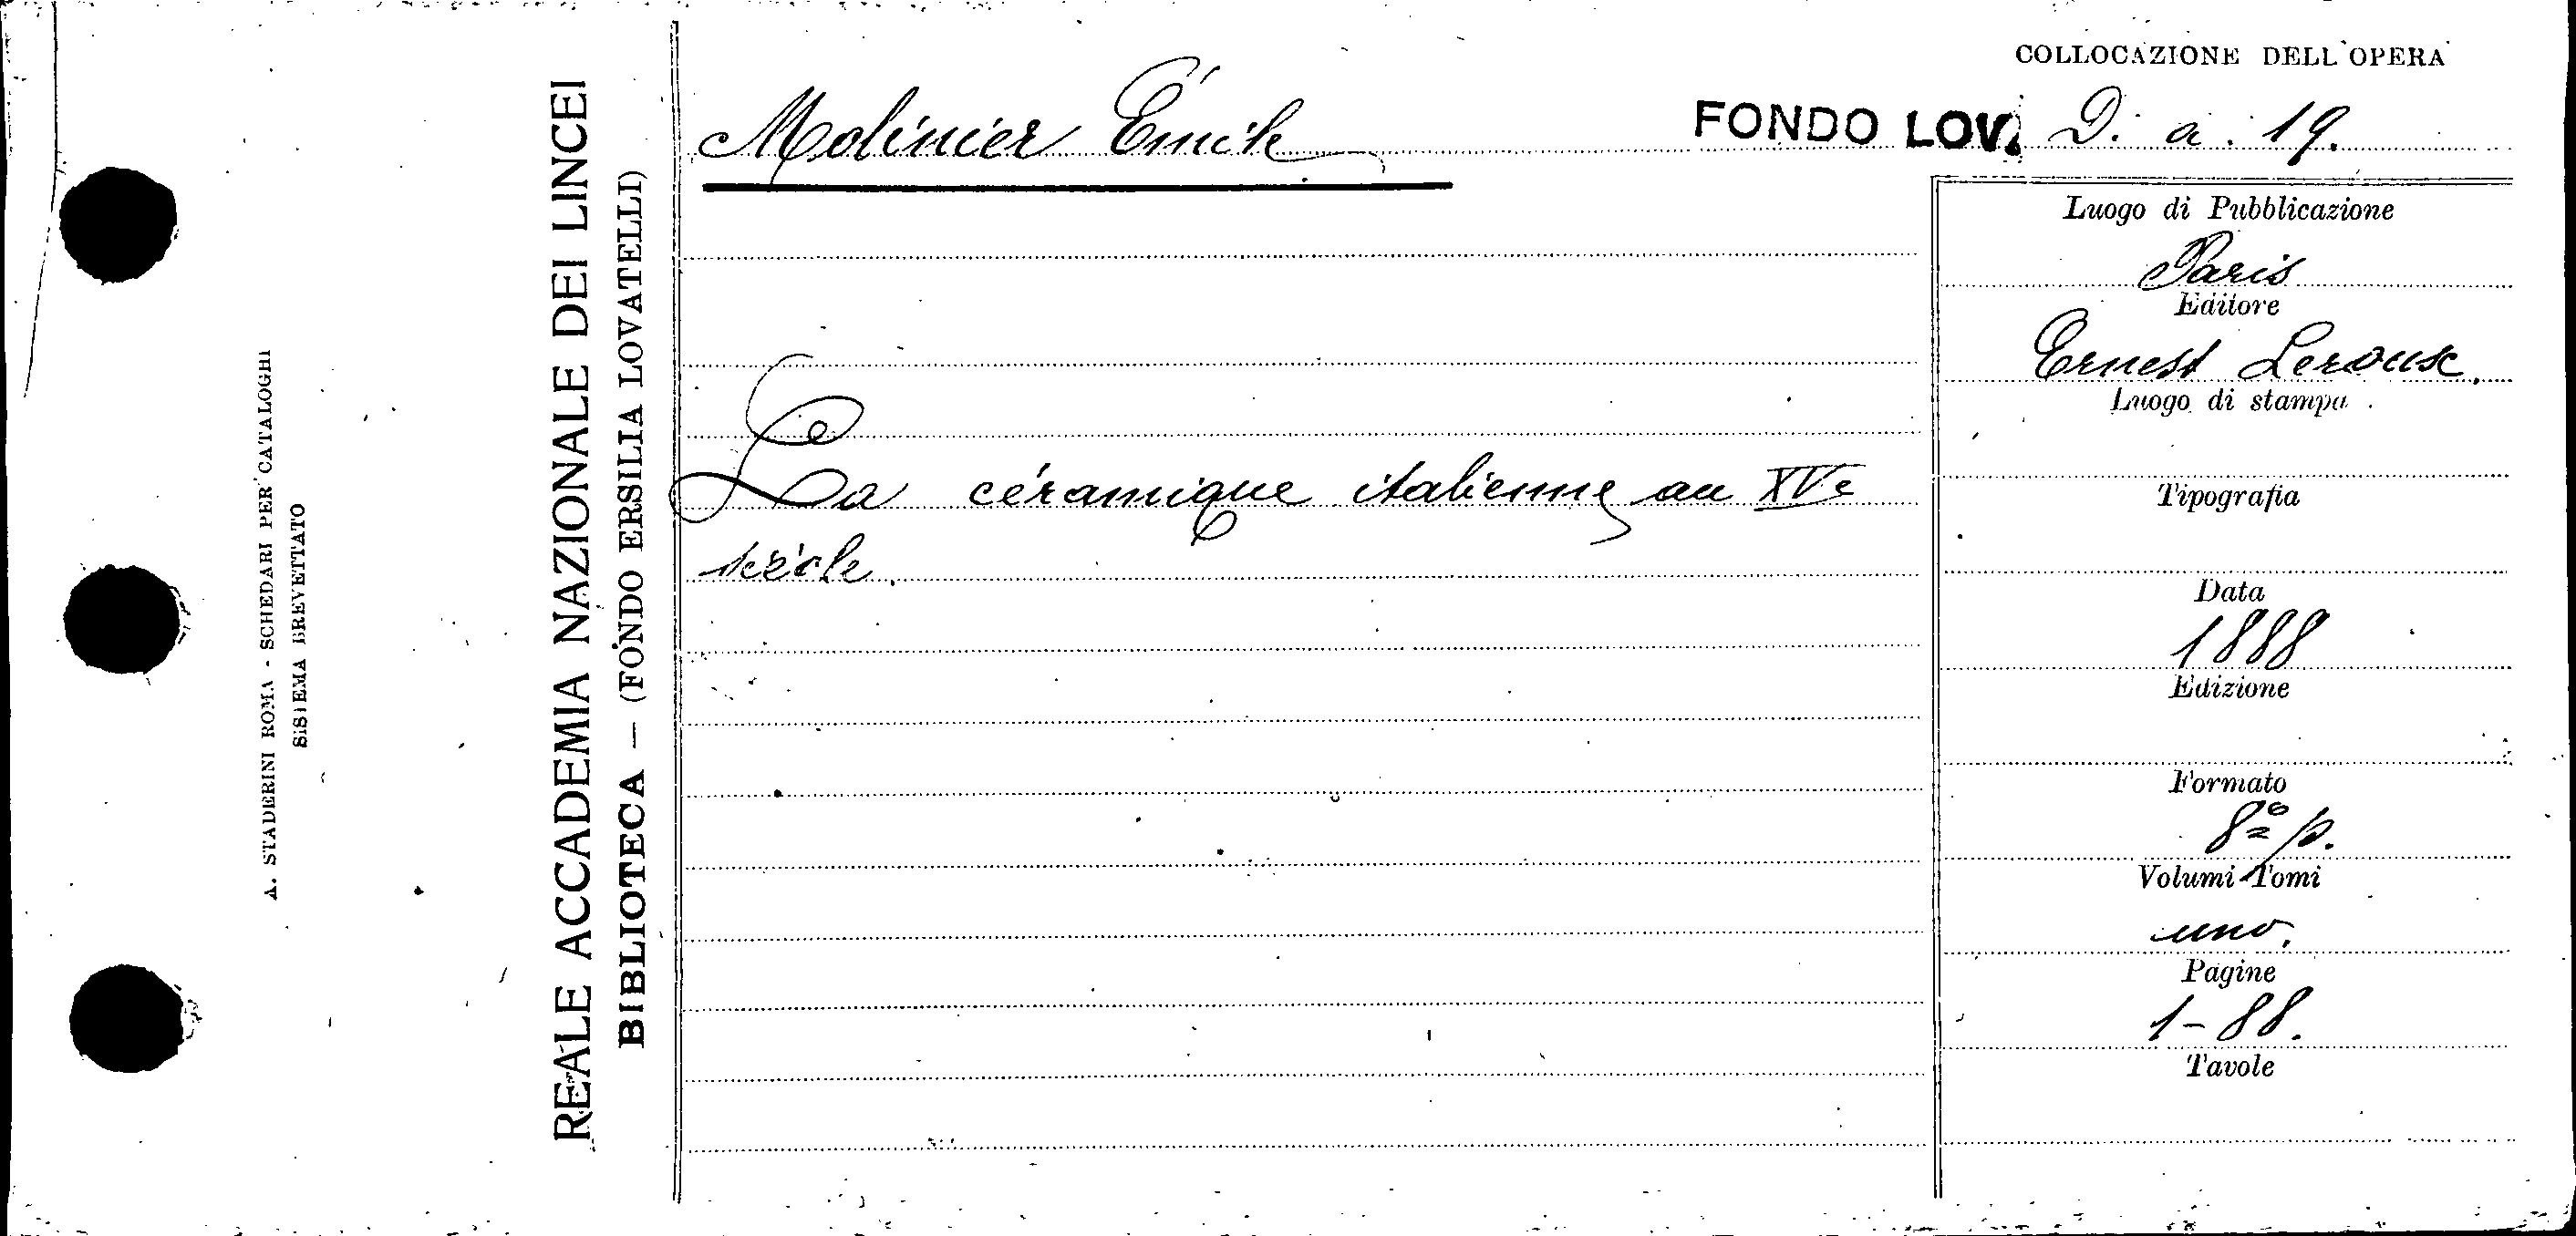 A. STADERINI ROMA - SCHEDARI PER CATALOGHI
SISTEMA BREVETTATO
REALE ACCADEMIA NAZIONALE DEI LINCEI
BIBLIOTECA — (FONDO ERSILIA LOVATELLI)
COLLOCAZIONE DELL'OPERA
Molinier Émile
FONDO LOV. D. a. 19.
La céramique italienne au XVe
siècle.
Luogo di Pubblicazione
Paris
Editore
Ernest Leroux.
Luogo di stampa
Tipografia
Data
1888
Edizione
Formato
8º p.
Volumi-Tomi
uno.
Pagine
1-88.
Tavole